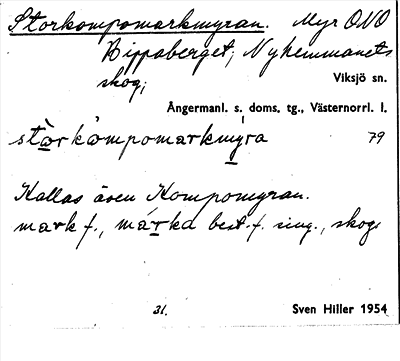 Storkompomarkmyran. Myr ONO
Bippaberget; Nyhemmanets
skog;
Viksjö sn.
Ångermanl. s. doms. tg., Västernorrl. l.
stòrkòmpomarkmyra 79
Kallas även Kompomyran.
mark f., márka best. f. sing., skog
31. Sven Hiller 1954